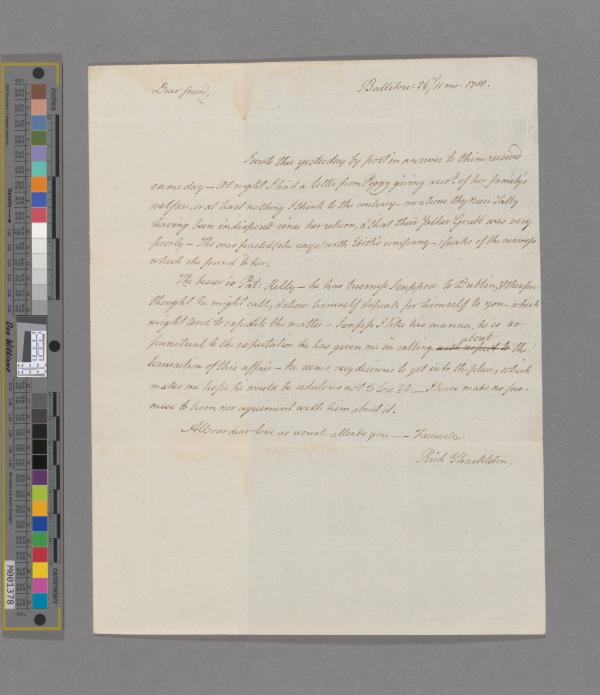 Dear friend,
Ballitore: 26/11 mo. 1781.
I wrote thee yesterday by post in answer to thine received
same day — At night I had a letter from Peggy giving acco.t of her family's
welfare, or at least nothing I think to the contrary — mentions thy niece Sally
having been indisposed since her return, & that their father Grubb was very
poorly — She was pleased (she says) with Edith's company — speaks of the nearness
which she found to her.
The bearer is Pat: Kelly — he has business I suppose to Dublin, & therefore
thought he might call, & shew himself & speak for himself to you — which
might tend to expedite the matter — I confess I like his manner, he is so
punctual to the expectation he has given me in calling with respect to about the
transaction of this affair — he seems very desirous to get into the place, which
makes me hope he would be sedulous not to lose it — I have made no pro-
mise to him, nor agreement with him about it.
All our dear love as usual attends you — Farewell
Rich Shackleton.
inches
Density
Don Williams
centimeters
M001378